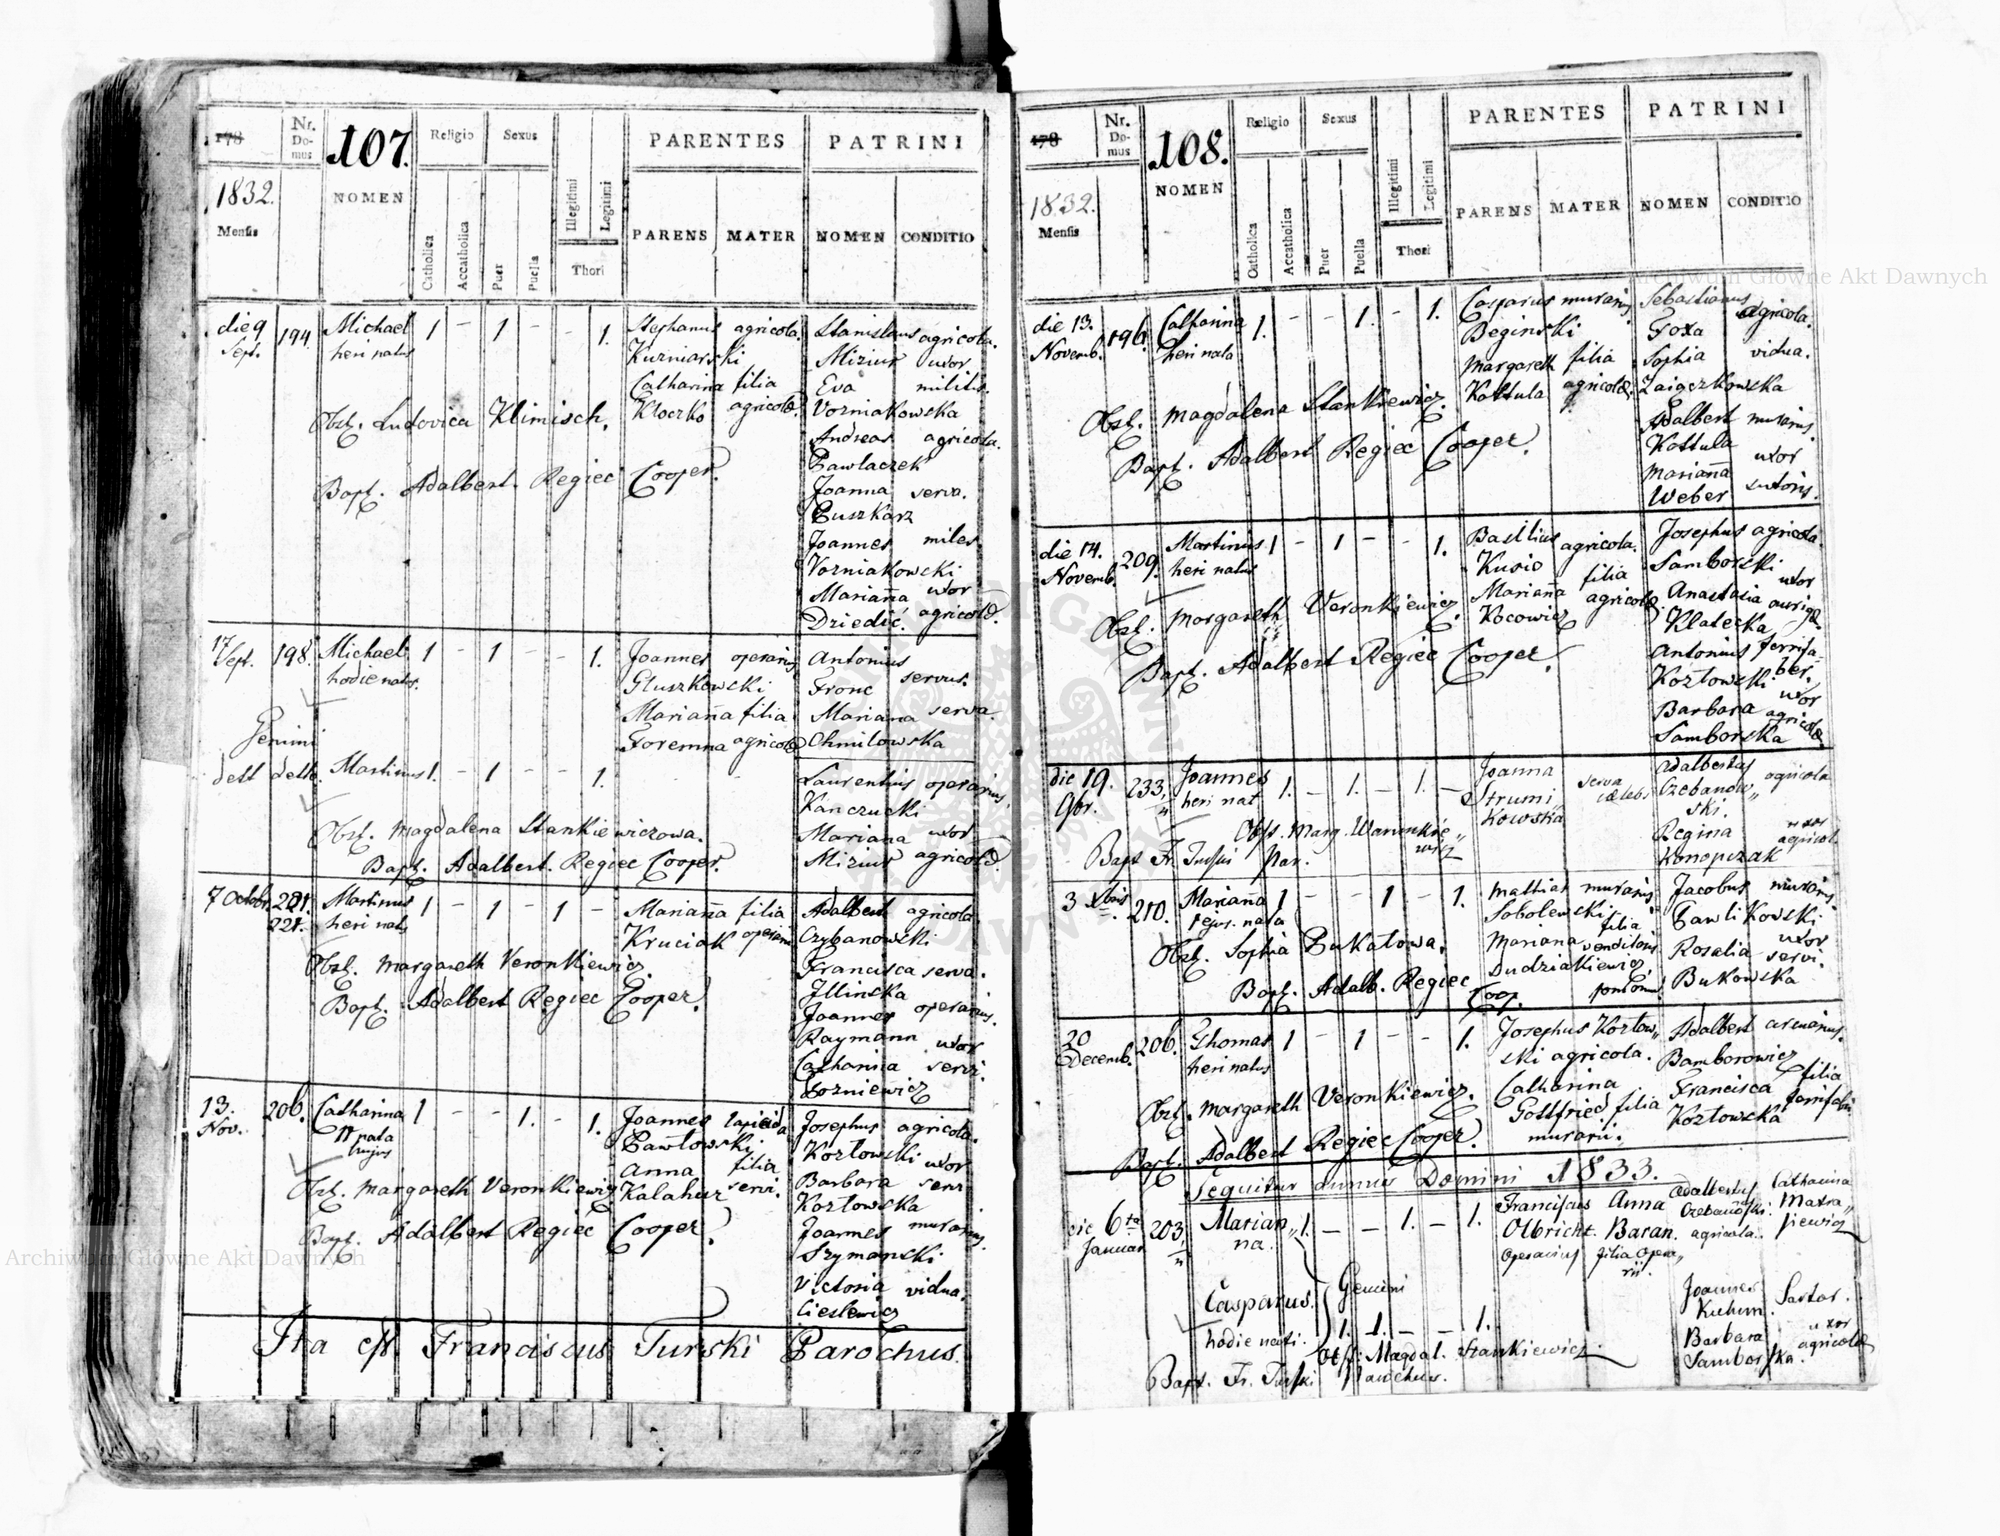 178
Nr.
Do-
mus
107.
Religio
Sexus
Illegitimi
Legitimi
PARENTES
PATRINI
1832.
Mensis
NOMEN
Catholica
Accatholica
Puer
Puella
Thori
PARENS
MATER
NOMEN
CONDITIO
die 9 194 Michael 1 - 1 - - 1. Stephanus agricola. Stanislaus agricola.
Sept. heri natus Kuzniarski Mizius uxor
Catharina filia Eva militis.
Obst. Ludovica Klimisch. Kloczko agricolæ. Vozniakowska
Andreas agricola.
Pawlaczek
Bapt. Adalbert Regiec Cooper. Joanna serva.
Puszkarz
Joannes miles
Vozniakowski
Marianna uxor
Dziedzic. agricolæ.
17 198. Michael 1 - 1 - - 1. Joannes operarius Antonius
Sept. hodie natus. Gluszkowski Fronc servus.
Marianna filia Mariana serva.
Foremna agricolæ Chmilowska
Gemini
dett detto Martinus 1. - 1 - - 1. Laurentius operarius.
Kanczucki
Obst. Magdalena Stankiewiczowa. Mariana uxor
Bapt. Adalbert Regiec Cooper. Mizius agricolæ
7 Octobr. 221. Martinus 1 - 1 - 1 - Marianna filia Adalbert agricola
221. heri natus Kruciak operarii Czybanowski
Obst. Margareth Veronkiewicz. Francisca serva.
Illinska
Bapt. Adalbert Regiec Cooper. Joannes operarius.
Raymann uxor
Catharina servi.
Lozniewicz
13. 206. Catharina 1 - - 1. - 1. Joannes lapicida Josephus agricola.
Nov. nata Pawlowski Kozlowski uxor
hujus Anna filia Barbara servi
Obst. Margareth Veronkiewicz Kalahur servi. Kozlowska
Bapt. Adalbert Regiec Cooper. Joannes murarius.
Szymanski
Victoria vidua.
Cieslewicz
Ita est. Franciscus Turski Parochus.
178
Nr.
Do-
mus
108.
Religio
Sexus
Illegitimi
Legitimi
PARENTES
PATRINI
1832.
Mensis
NOMEN
Catholica
Accatholica
Puer
Puella
Thori
PARENS
MATER
NOMEN
CONDITIO
die 13. 196. Catharina 1. - - 1. - 1. Casparus murarius Sebastianus agricola.
Novemb. heri nata Beginski Foxa
Margareth filia Sophia vidua.
Kottula agricolæ. Zaigezkowska
Obst. Magdalena Stankiewicz. Adalbert murarius.
Kottula
Bapt. Adalbert Regiec Cooper. Marianna uxor
Weber sutoris.
die 14. 209. Martinus 1 - 1 - - 1. Basilius agricola. Josephus agricola.
Novemb. heri natus Kusio Samborski
Marianna filia Anastasia uxor
Obst. Margareth Veronkiewicz. Kocowicz agricolæ. Klatecka aurigæ
Antonius ferrifa-
Bapt. Adalbert Regiec Cooper. Kozlowski ber.
Barbara uxor
Samborska agricolæ.
die 19. 233. Joannes 1. - 1. - 1. - Joanna serva Adalbertus agricola
9br. heri nat Strumi„ cælebs Czebanow„
kowska ski.
Obst. Marg. Waronkie„ Regina uxor
wicz Konopczak agricolæ
Bapt Fr. Turski Par.
3 Xbris 210. Mariana 1 - - 1 - 1. Mathias murarius. Jacobus murarius
ejus. nata Sobolewski. Pawlikowski
Obst. Sophia Bukatowa. Mariana filia Rosalia uxor
Dudziakiewicz venditoris Bukowska servi.
Bapt. Adalb. Regiec Coop. pomorum.
20 206. Thomas 1 - 1 - - 1. Josephus Kozlow„ Adalbert
Decemb. heri natus ski agricola. Bamborowicz
Catharina Francisca filia
Obst. Margareth Veronkiewicz. Gottfried filia Kozlowska ferrifabri
murarii.
Bapt. Adalbert Regiec Cooper.
Sequitur Annus Domini 1833.
die 6ta 203. Marian„ 1. - - 1. - 1. Franciscus Anna Adalbertus Catharina
Januar na. Olbricht Baran. Czebanowski. Matra„
Operarius filia opera„ agricola. siewicz
rii.
Casparus. Gemini Joannes Sartor.
1. 1. - - 1. Kuhnn.
hodie nati. Obst: Magdal. Stankiewicz. Barbara uxor
Bapt. Fr. Turski Parochus. Samborska. agricolæ
Archiwum Główne Akt Dawnych
Archiwum Główne Akt Dawnych